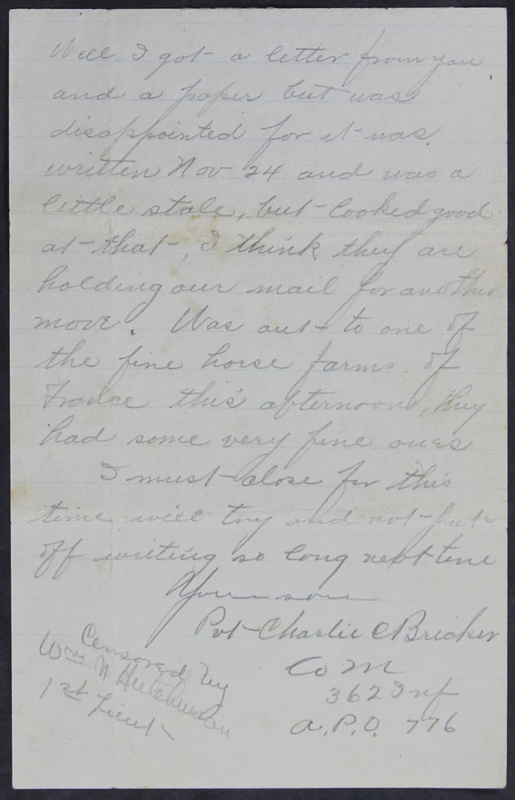 Well I got a letter from you
and a paper but was
disappointed for it was
written Nov 24 and was a
little stale, but looked good
at that, I think they are
holding our mail for another
move. Was out to one of
the fine horse farms of
France this afternoon, they
had some very fine ones
I must close for this
time will try and not put
off writing so long next time
Your son
Pvt Charlie C Bricker
Co M
362 Inf
A.P.O. 776
Censored by
Wm N Hutchinson
1st Lieut